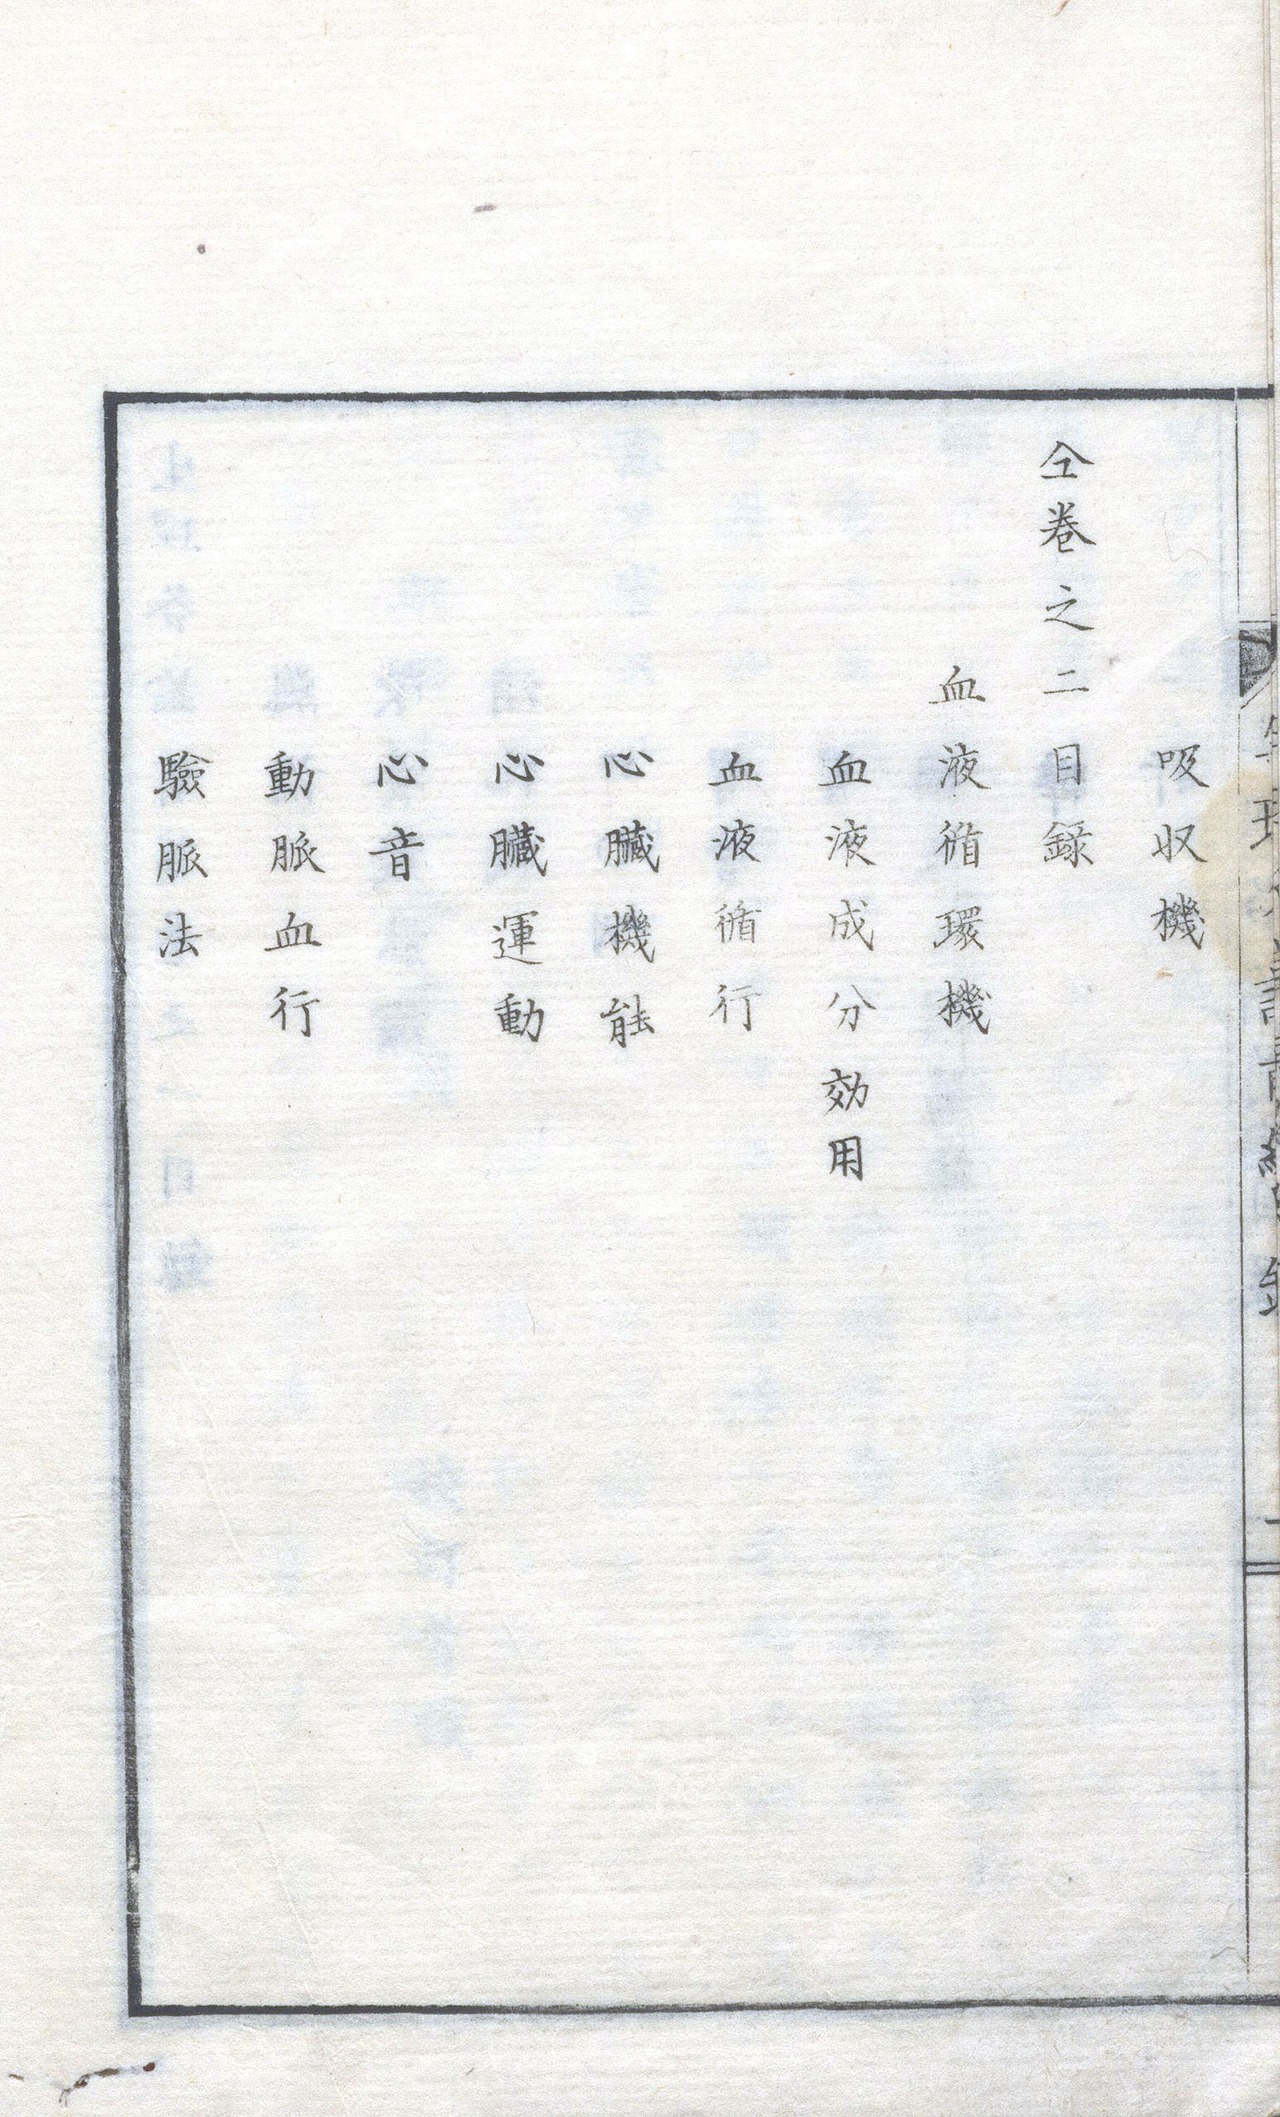 吸収機
仝卷之二目錄
血液循環機
血液成分効用
血液循行
心臟機能
心臟運動
心音
動脈血行
驗脈法